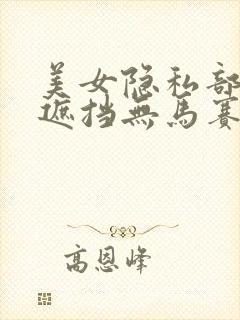 美女隐私部
遮挡無馬賽
高恩峰